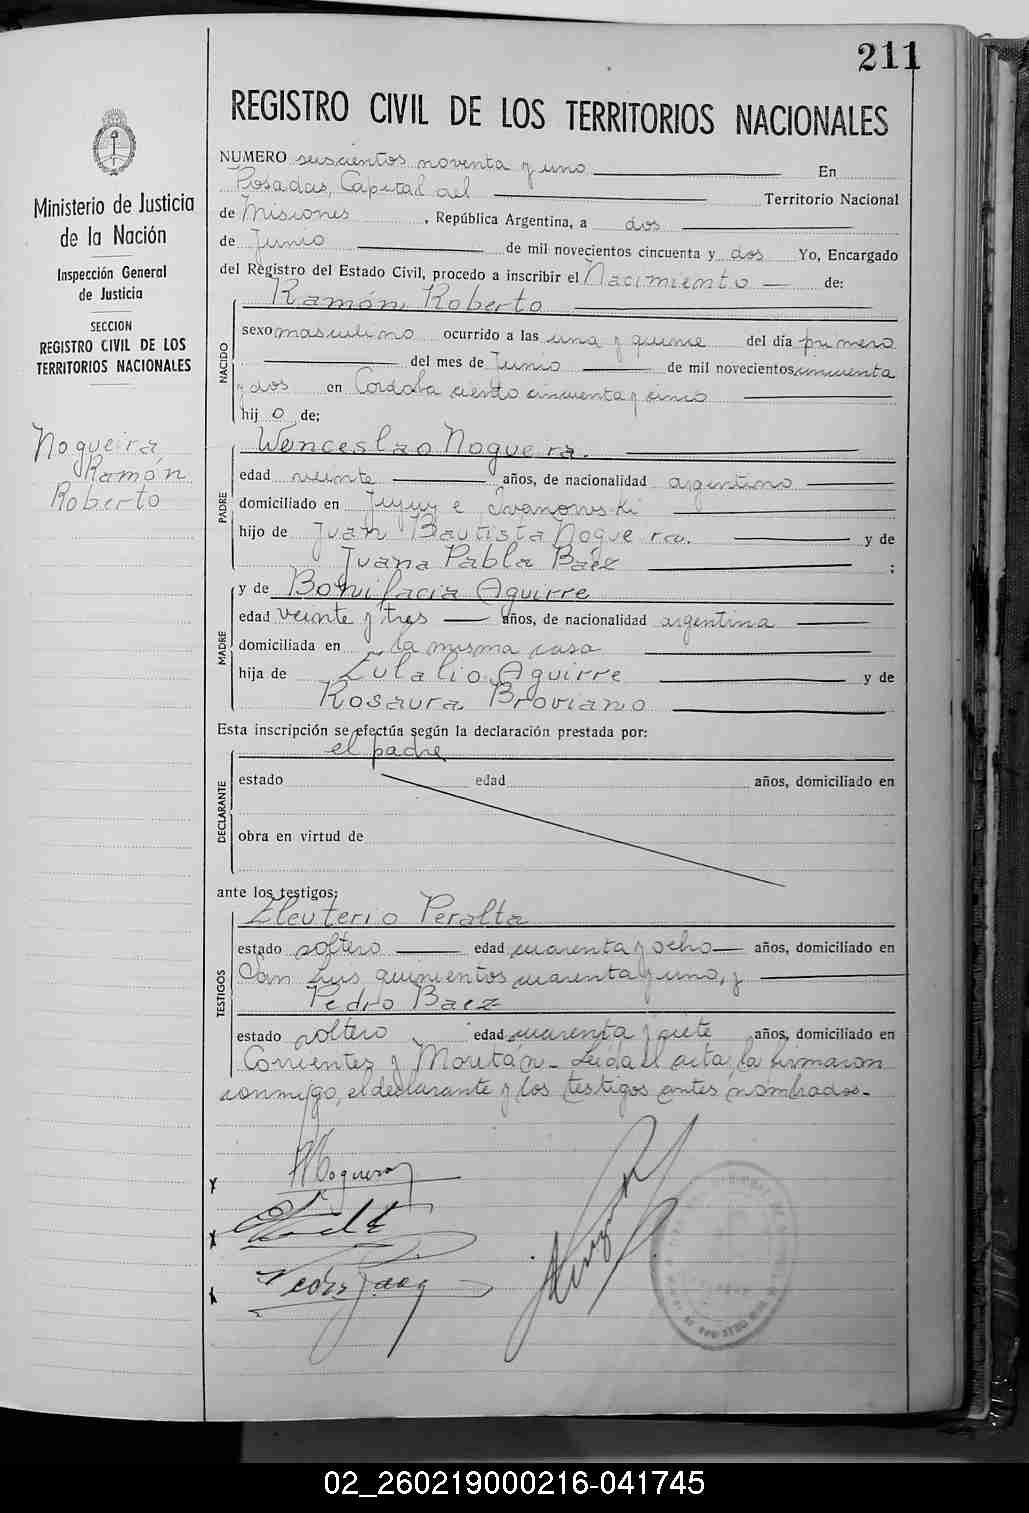 211
REGISTRO CIVIL DE LOS TERRITORIOS NACIONALES
Ministerio de Justicia
de la Nación
Inspección General
de Justicia
SECCION
REGISTRO CIVIL DE LOS
TERRITORIOS NACIONALES
Nogueira
Ramón
Roberto
NUMERO seiscientos noventa y uno En
Posadas, Capital del Territorio Nacional
de Misiones, República Argentina, a dos
de Junio de mil novecientos cincuenta y dos Yo, Encargado
del Registro del Estado Civil, procedo a inscribir el Nacimiento de:
Ramón Roberto
NACIDO
sexo masculino ocurrido a las una y quince del día primero
del mes de Junio de mil novecientos cincuenta
y dos en Cordoba ciento cincuenta y cinco
hij o de;
Wenceslao Nogueira.
PADRE
edad veinte años, de nacionalidad argentino
domiciliado en Jujuy e Ivanowski
hijo de Juan Bautista Nogueira. y de
Juana Pabla Baez ;
y de Bonifacia Aguirre
MADRE
edad veinte y tres años, de nacionalidad argentina
domiciliada en la misma casa
hija de Eulalio Aguirre y de
Rosaura Broviano
Esta inscripción se efectúa según la declaración prestada por:
el padre
DECLARANTE
estado edad años, domiciliado en
obra en virtud de
ante los testigos;
Eleuterio Peralta
TESTIGOS
estado soltero edad cuarenta y ocho años, domiciliado en
San Luis quinientos cuarenta y uno, y
Pedro Baez
estado soltero edad cuarenta y siete años, domiciliado en
Corrientes y Moritán. Leida el acta, la firmaron
conmigo, el declarante y los testigos antes nombrados.
WNogueira
Pedro Baez
02_260219000216-041745